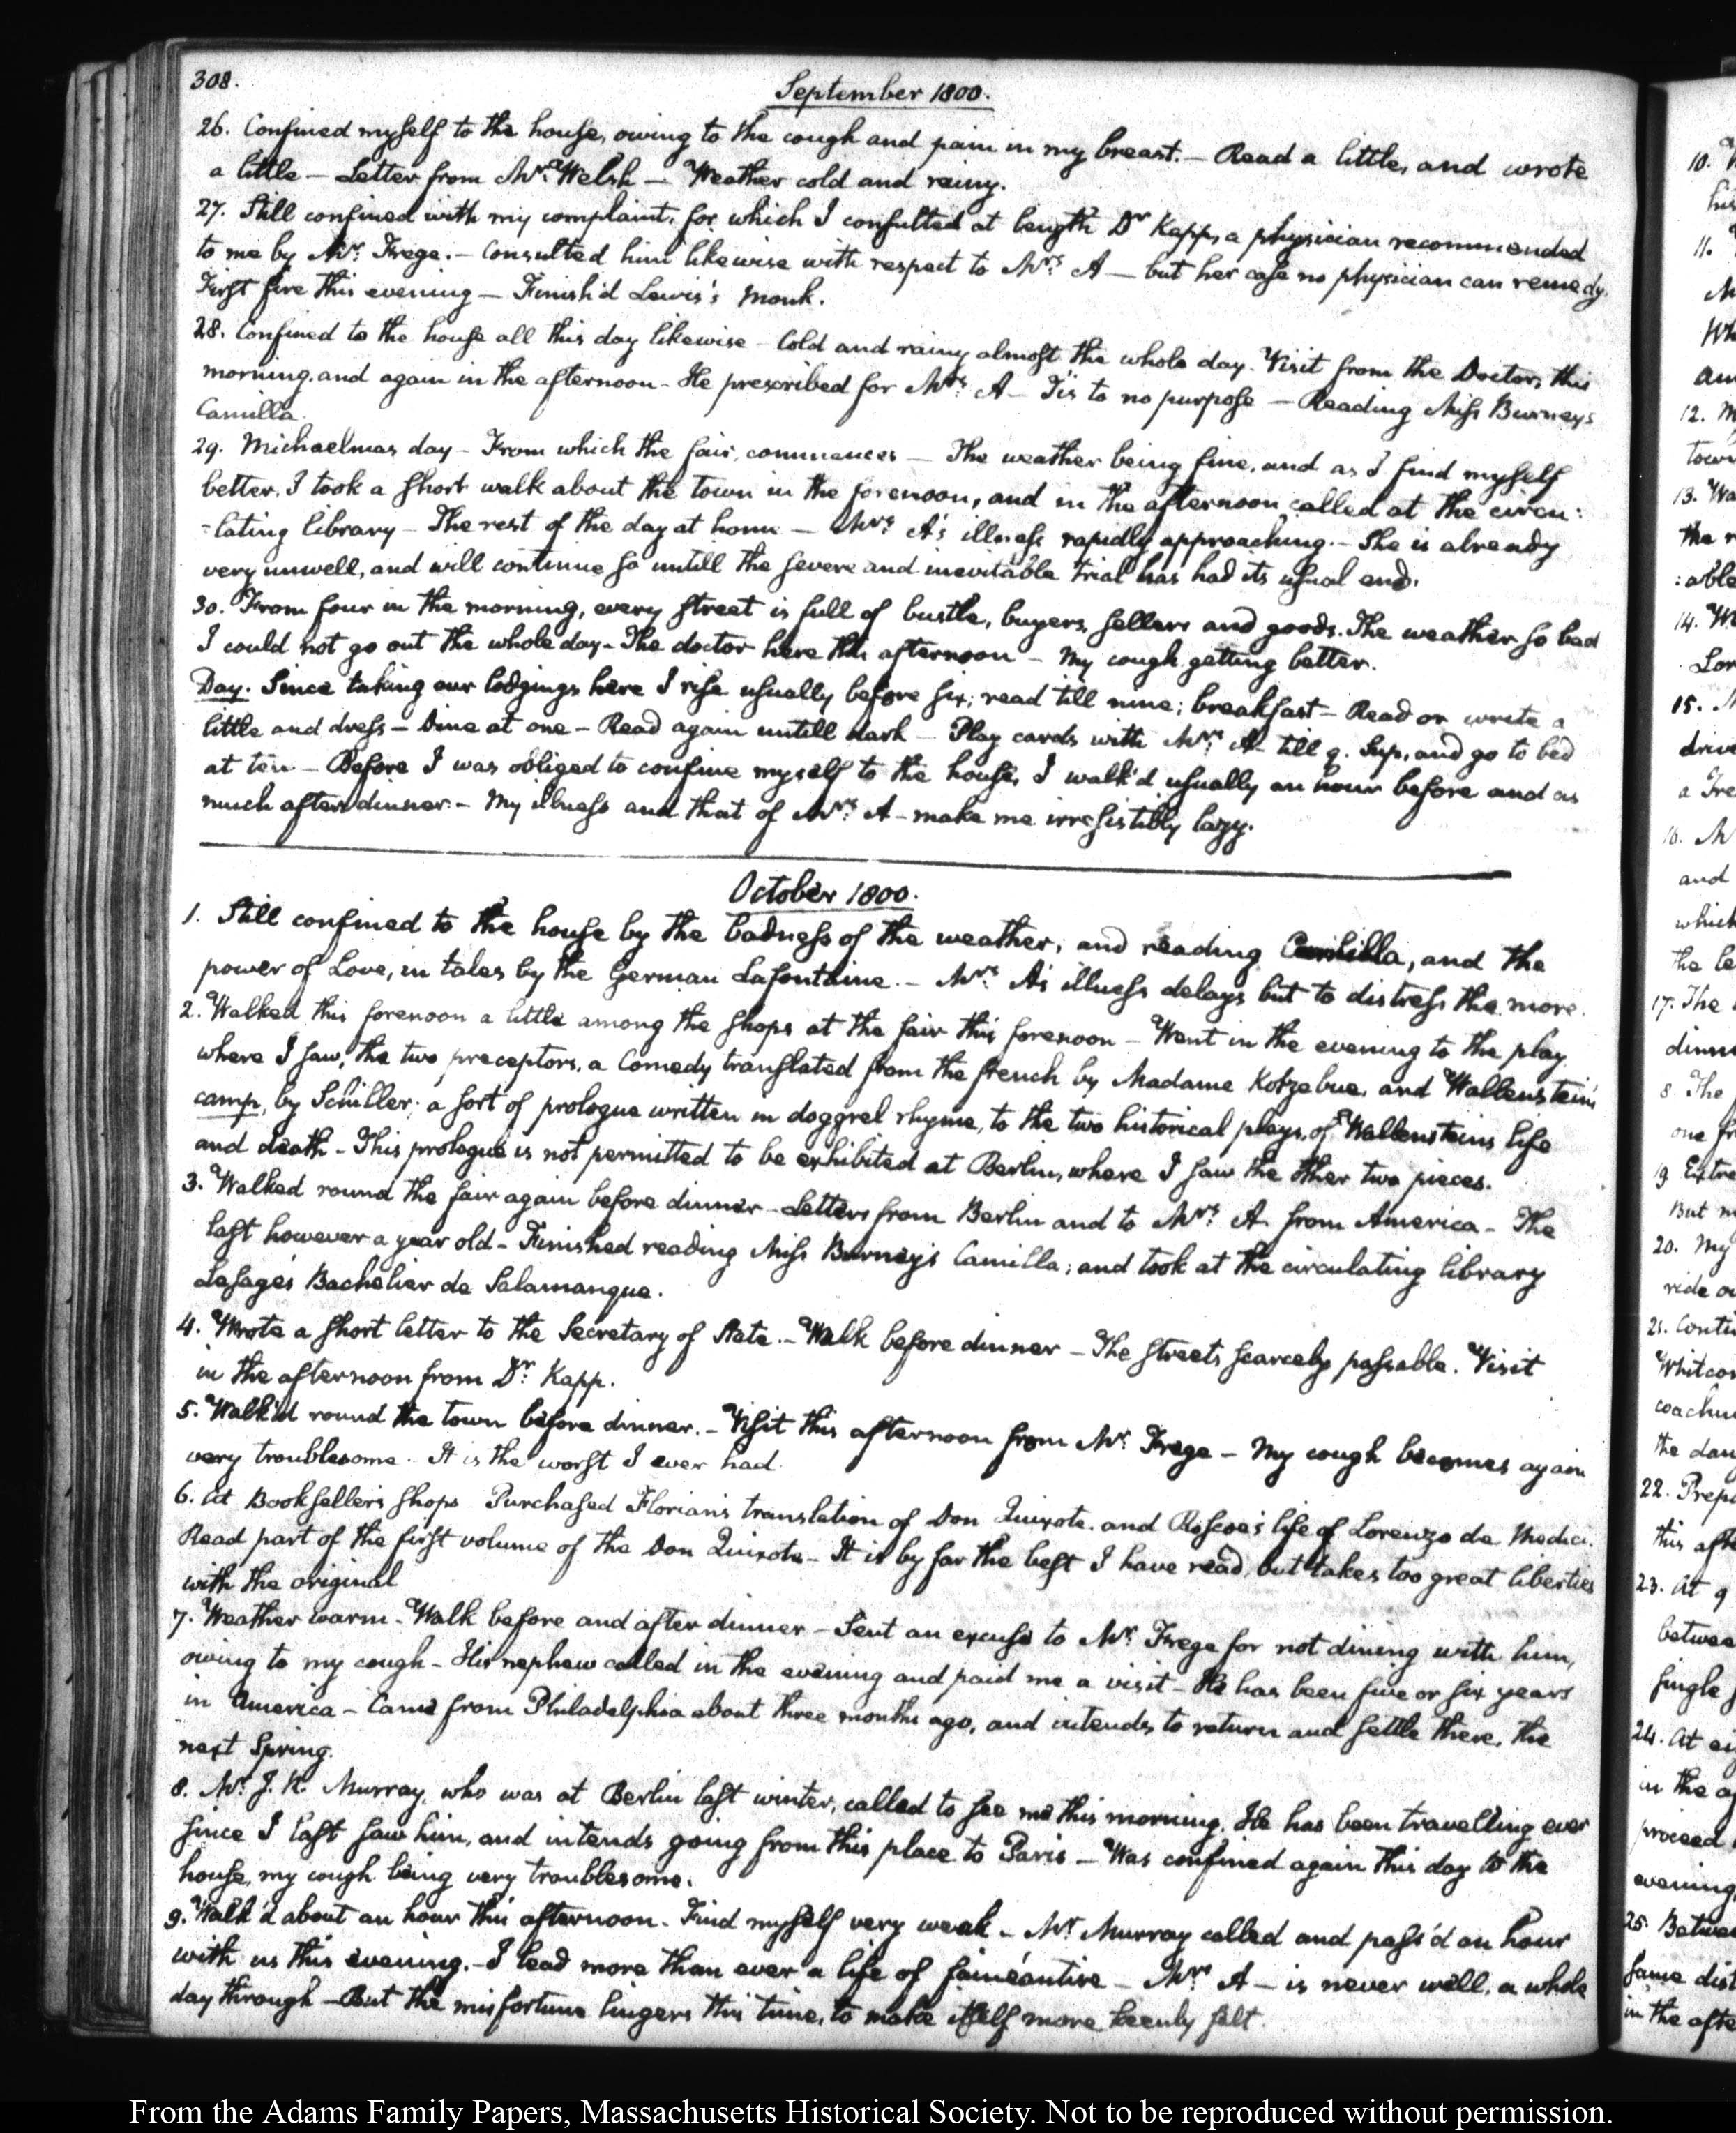 308.
September 1800.
26. Confined myself to the house, owing to the cough and pain in my breast. — Read a little, and wrote
a little — Letter from Mr. Welsh — Weather cold and rainy.
27. Still confined with my complaint, for which I consulted at length Dr Kapp, a physician recommended
to me by Mr. Frege. — Consulted him likewise with respect to Mrs. A — but her case no physician can remedy.
First fire this evening — Finish'd Lewis's Monk.
28. Confined to the house all this day likewise — Cold and rainy almost the whole day. Visit from the Doctor, this
morning, and again in the afternoon — He prescribed for Mrs. A — Tis to no purpose — Reading Miss Burneys
Camilla.
29. Michaelmas day — From which the fair, commences — The weather being fine, and as I find myself
better, I took a short walk about the town in the forenoon, and in the afternoon called at the circu:
:lating library — The rest of the day at home — Mrs. A's illness rapidly approaching. — She is already
very unwell, and will continue so untill the severe and inevitable trial has had its usual end.
30. From four in the morning, every street is full of bustle, buyers, sellers and goods. The weather so bad
I could not go out the whole day — The doctor here this afternoon — My cough getting better.
Day. Since taking our lodgings here I rise usually before six; read till nine; breakfast — Read or write a
little and dress — Dine at one — Read again untill dark — Play cards with Mrs. A — till 9. Sup, and go to bed
at ten — Before I was obliged to confine myself to the house, I walk'd usually an hour before and as
much after dinner. — My illness and that of Mrs. A — make me irresistibly lazy.
October 1800.
1. Still confined to the house by the badness of the weather, and reading Camilla, and the
power of Love, in tales by the German Lafontaine. — Mrs. A's illness delays but to distress the more.
2. Walked this forenoon a little among the shops at the fair this forenoon — Went in the evening to the play
where I saw, the two preceptors, a Comedy translated from the french by Madame Kotzebue, and Wallensteins
camp, by Schiller; a sort of prologue written in doggrel rhyme, to the two historical plays, of Wallensteins life
and death — This prologue is not permitted to be exhibited at Berlin, where I saw the other two pieces.
3. Walked round the fair again before dinner — Letters from Berlin and to Mrs. A from America — The
last however a year old — Finished reading Miss Burney's Camilla; and took at the circulating library
Lesage's Bachelier de Salamanque.
4. Wrote a short letter to the Secretary of State. — Walk before dinner — The streets scarcely passable. Visit
in the afternoon from Dr. Kapp.
5. Walk'd round the town before dinner. — Visit this afternoon from Mr. Frege — My cough becomes again
very troublesome. It is the worst I ever had.
6. At Booksellers shops. Purchased Florian's translation of Don Quixote, and Roscoe's life of Lorenzo de Medici.
Read part of the first volume of the Don Quixote — It is by far the best I have read, but takes too great liberties
with the original
7. Weather warm — Walk before and after dinner — Sent an excuse to Mr. Frege for not dining with him,
owing to my cough — His nephew called in the evening and paid me a visit — He has been five or six years
in America — Came from Philadelphia about three months ago, and intends to return and settle there, the
next Spring.
8. Mr. J. R. Murray, who was at Berlin last winter, called to see me this morning. He has been travelling ever
since I last saw him, and intends going from this place to Paris — Was confined again this day to the
house, my cough being very troublesome.
9. Walk'd about an hour this afternoon — Find myself very weak — Mr Murray called and pass'd an hour
with us this evening. — I lead more than ever a life of fainéantise — Mrs. A — is never well, a whole
day through — But the misfortune lingers this time, to make itself more keenly felt.
From the Adams Family Papers, Massachusetts Historical Society. Not to be reproduced without permission.